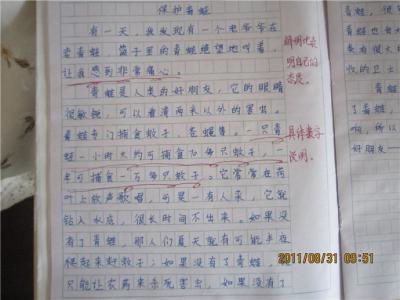 保护青蛙
有一天，我发现有一个老爷爷在
卖青蛙，笼子里的青蛙绝望地叫着，
让我感到非常痛心。
青蛙是人类的好朋友，它的眼睛
很敏锐，可以看清两米以外的害虫。
青蛙专门捕食蚊子、苍蝇等。一只青
蛙一小时大约可捕食70多只蚊子，一
年可捕食一万多只蚊子。它常常在荷
叶上放声歌唱，可是一有人来，它就
钻入水底，很长时间不出来。如果没
有了青蛙，那人们夏天就有可能半夜
爬起来打蚊子；如果没有了青蛙，
只能让农药来杀死害虫。如果没有了
明自己的
态度。
具体数字
说明。
青蛙
了青蛙
好朋友
的卫士
2011/08/31 09:51